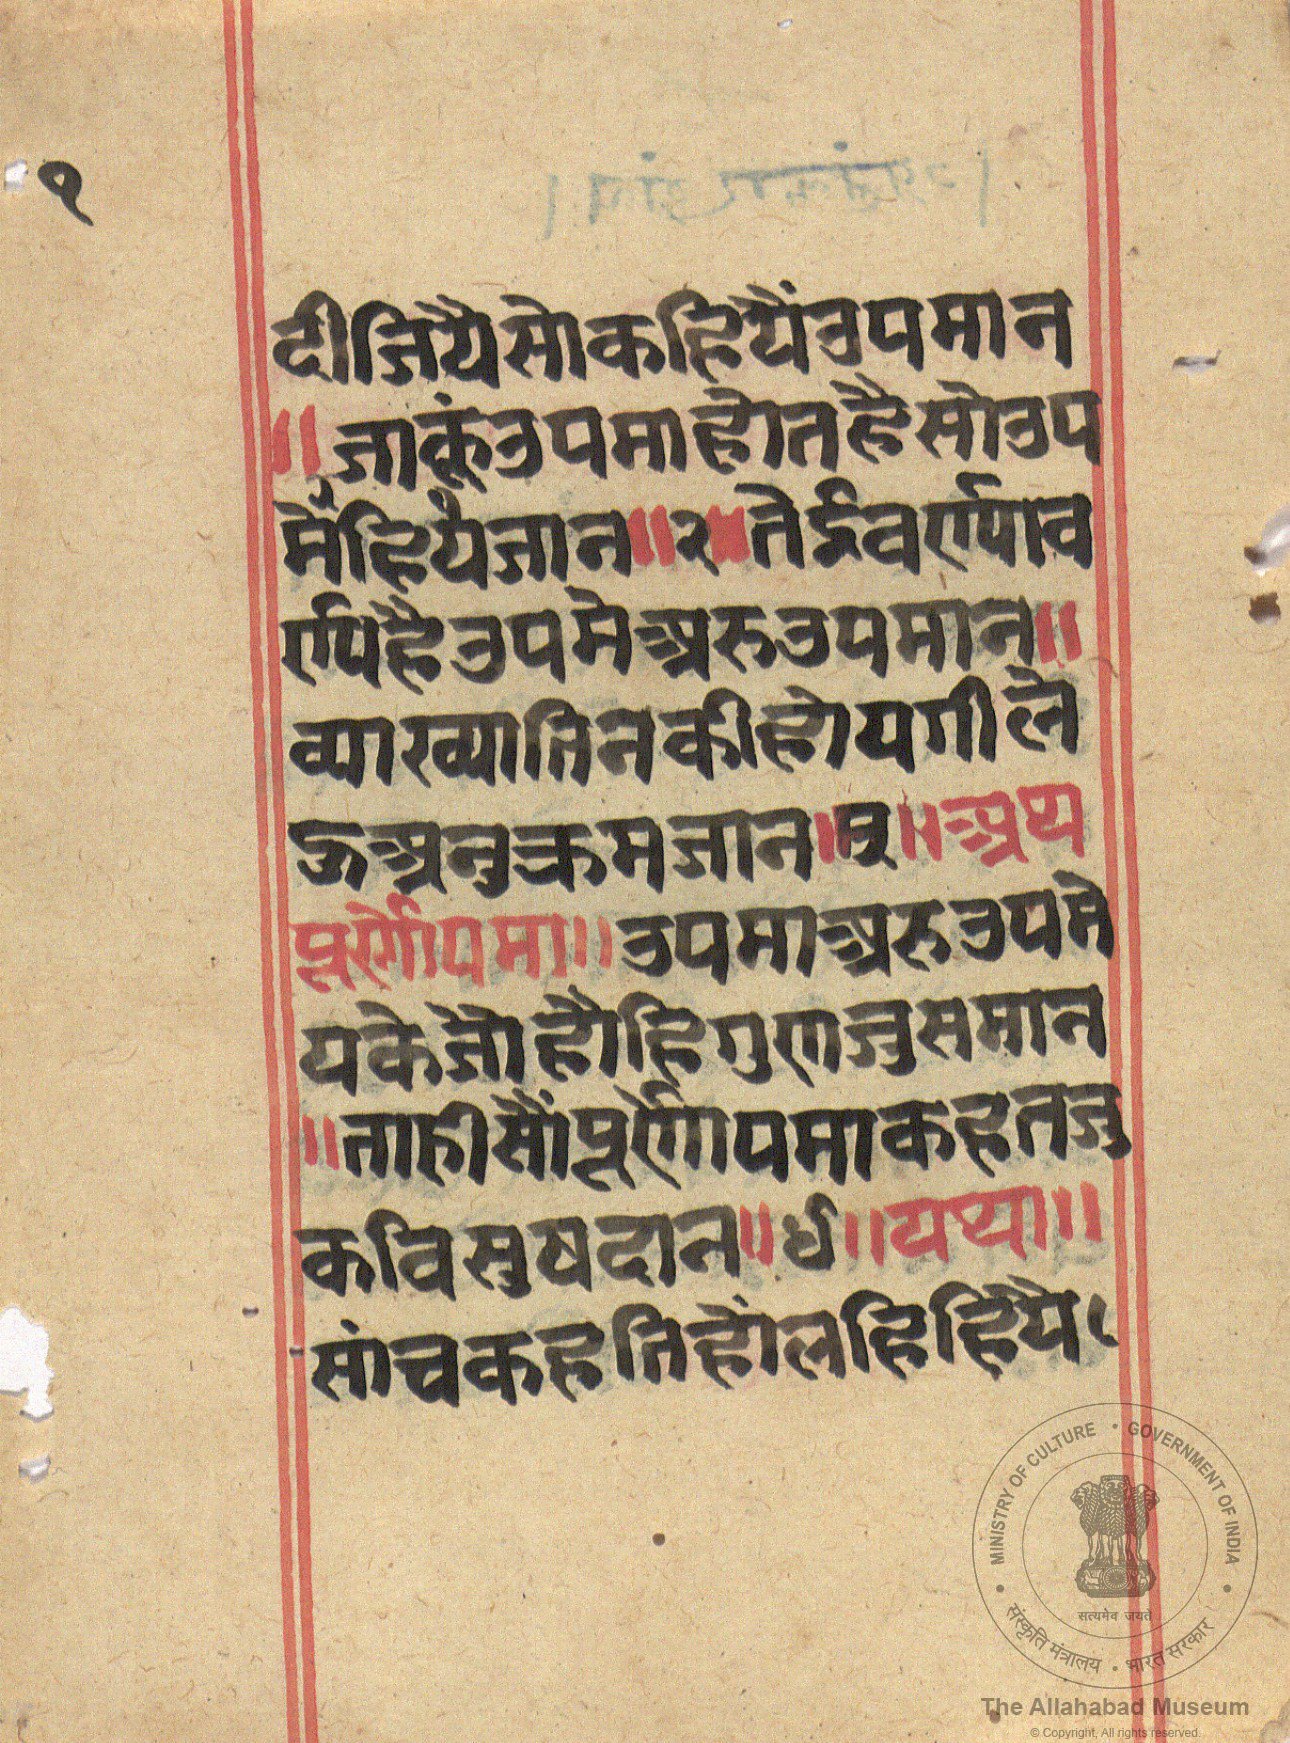 १
दीजियै सो कहियैं उपमान
॥ जाकूं उपमा होत है सो उप
में हियै जान ॥ २ ॥ तेई वर्ण्याव
र्ण्य है उपमे अरु उपमान ॥
व्याख्या तिन की होयगी ले
ऊ अनुक्रम जान ॥ ३ ॥ अथ
पूर्णोपमा ॥ उपमा अरु उपमे
य के जो हौहि गुण जु समान
॥ ताही सौं पूर्णोपमा कहत जु
कवि सुषदान ॥ ४ ॥ यथा ॥
सांच कहति हों लहि हियै
MINISTRY OF CULTURE • GOVERNMENT OF INDIA
सत्यमेव जयते
संस्कृति मंत्रालय • भारत सरकार
The Allahabad Museum
© Copyright, All rights reserved.